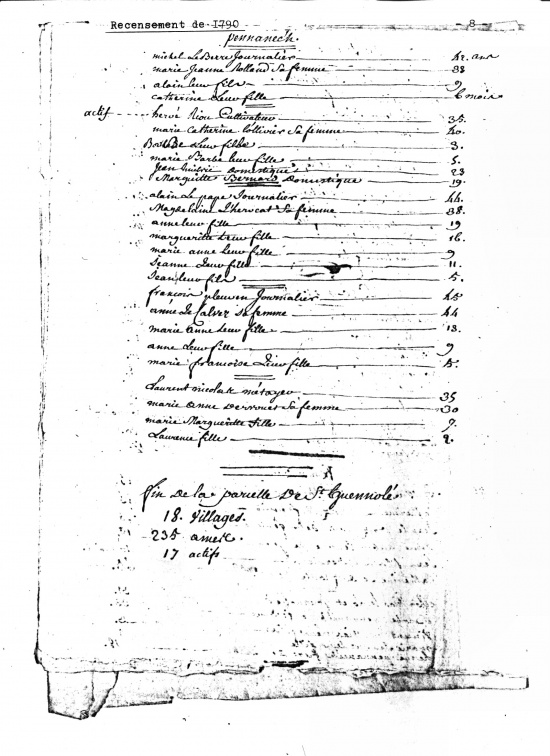 Recensement de 1790 - 8 -
pennanech.
michel Le Berre Journalier 42. ans
marie Jeanne Rolland Sa femme 38
alain leur fils 9
catherine Leur fille 6 mois
actif hervé Riou Cultivateur 35.
marie catherine Lollivier Sa femme 40.
Leur fille 3.
marie Barbe leur fille 5.
Jean Domestique 23
Margueritte Bernard Domestique 19.
alain Le pape Journalier 44.
Magdelaine Lhervcat Sa femme 38.
anne leur fille 19
margueritte Leur fille 16.
marie anne Leur fille 9
Jeanne Leur fille 11.
Jean leur fils 5.
françois pleuven Journalier 45
anne Le Calvez Sa femme 44
marie anne Leur fille 13.
anne Leur fille 9
marie francoise Leur fille 5.
Laurent nicolas métayer 35
marie anne Derrouet Sa femme 30
marie Margueritte fille 7.
Laurence fille 2.
fin de la parcelle De St Guennolé
18. Villages.
235 ames.
17 actifs